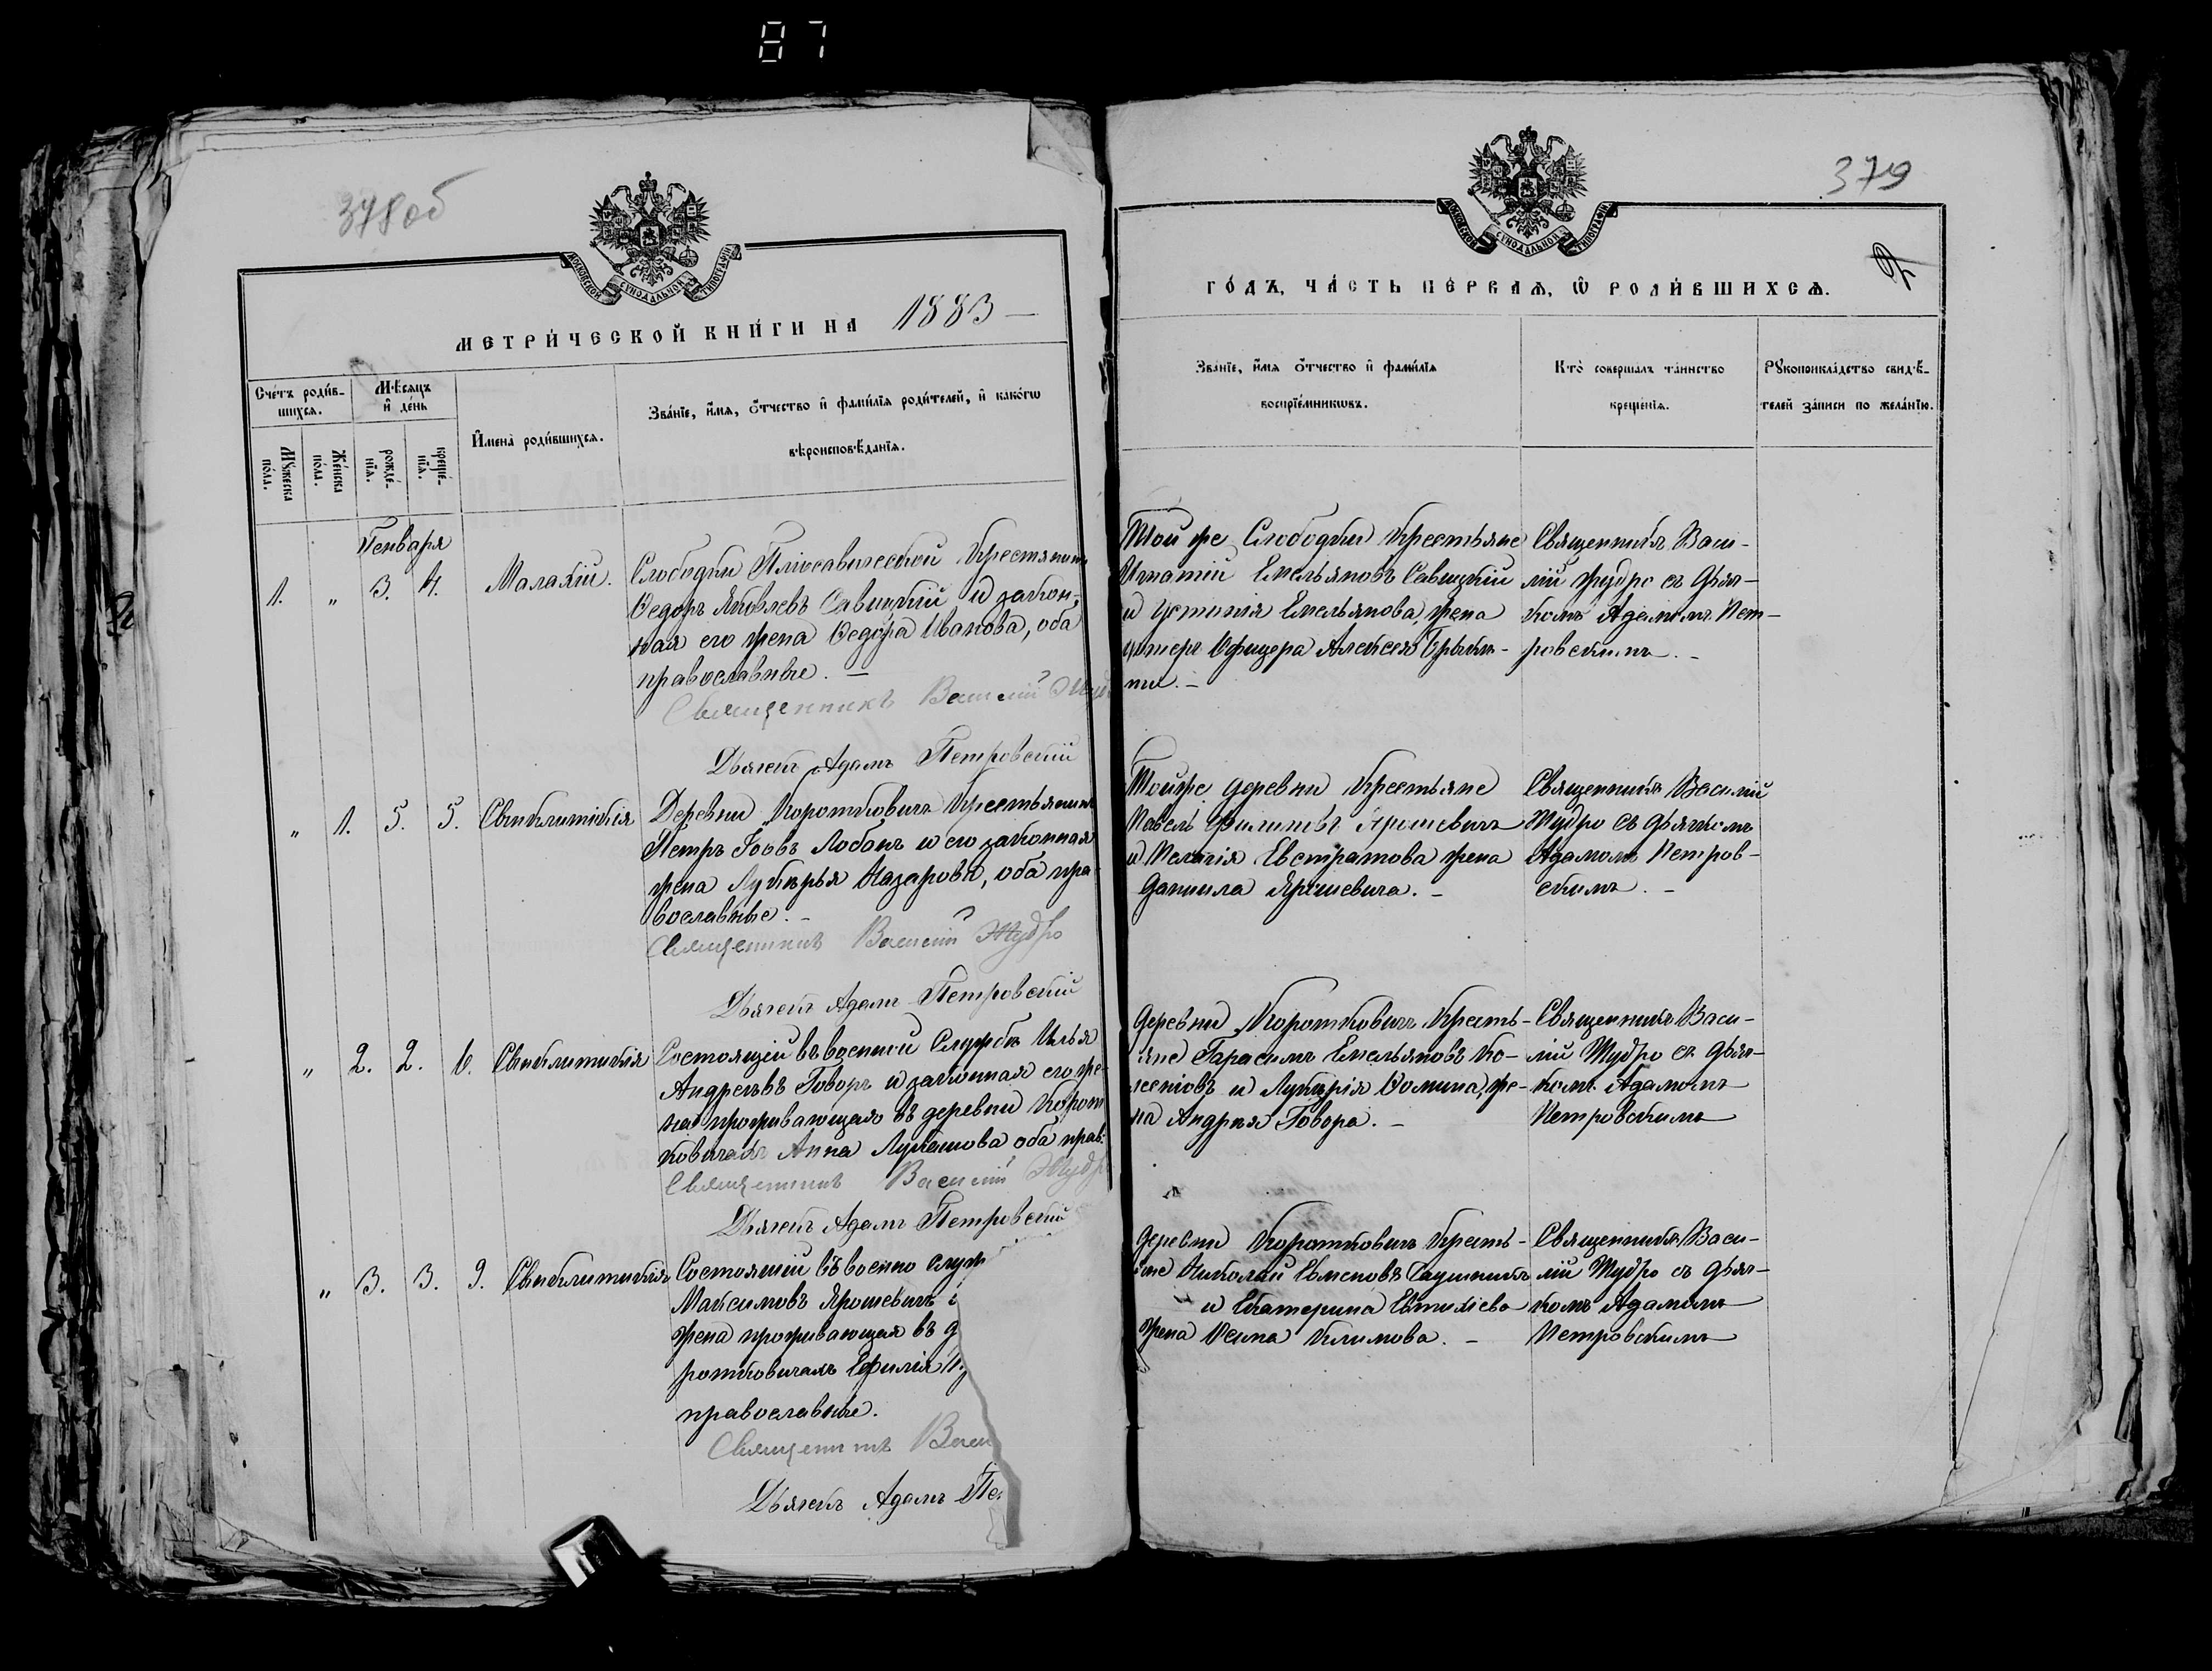 87
378об
МОСКОВСКОЙ СѴНОДАЛЬНОЙ ТИПОГРАФІИ
МЕТРИ́ЧЕСКОЙ КНИ́ГИ НА 1883
Сче́тъ роди́в-
шихсѧ.
Мѣ́сѧцъ
и҆ де́нь
И҆мена̀ роди́вшихсѧ.
Зва́нїе, и҆́мѧ, ѻ҆́тчество и҆ фами́лїѧ роди́телей, и҆ како́гѡ
вѣроисповѣ́данїѧ.
Мꙋ́жеска
по́ла.
Же́нска
по́ла.
рожде́-
нїѧ.
креще́-
нїѧ.
Генваря
1. " 3. 4. Малахій.
Слободки Крестянинъ
Ѳедоръ Яковлевъ Савицкій и закон-
ная его жена Ѳедора Иванова, оба
православные. —
Священникъ Василій
Дьячекъ Адамъ Петровскій
" 1. 5. 5. Свѣклитикія
Деревни Короткович Крестьянинъ
Петръ Іовъ Лобанъ и его законная
жена Лукерья Назарова, оба пра-
вославные. -
Священникъ Василій Жудро
Дьячекъ Адамъ Петровскій
" 2. 2. 6. Свѣклитикія
Состоящій въ военной Службѣ Илья
Андреевъ Говоръ и законная его же-
на проживающая въ деревни Корот
ковичахъ Анна Лукашова оба прав.
Священникъ Василій
Дьячекъ Адамъ Петровскій
" 3. 3. 9. Свѣклитикія
Состоящій въ военно служ
Максимовъ Ярошевичъ
жена проживающая въ д
ротковичахъ
православные.
Священникъ
Дьячекъ Адамъ Пе
379
МОСКОВСКОЙ СѴНОДАЛЬНОЙ ТИПОГРАФІИ
ГО́ДЪ, ЧА́СТЬ ПЕ́РВАѦ, Ѡ҆ РОДИ́ВШИХСѦ.
Зва́нїе, и҆́мѧ ѻ҆́тчество и҆ фами́лїѧ
воспрїе́мникѡвъ.
Кто̀ соверша́лъ та́инство
креще́нїѧ.
Рꙋкоприкла́дство свидѣ́-
телей за́писи по жела́нїю.
Той же Слободки Крестьяне
Игнатій Емельяновъ Савицкій
и Устинія Емельянова, жена
Унтеръ Офицера Алексея
Священникъ Васи-
лій Жудро съ дьяч-
комъ Адамомъ Пет-
ровскимъ. -
Тойже деревни Крестьяне
Павелъ Филиповъ Ярошевичъ
и Пелагія Евстратова жена
Даниила Ярошевича. -
Священникъ Василій
Жудро съ дьячкомъ
Адамомъ Петров-
скимъ. -
деревни Короткович Кресть-
яне Гарасимъ Емельяновъ Ко-
и Лукерія Ѳомина, же-
на Андрея Говора. -
Священникъ Васи-
лій Жудро съ дьяч-
комъ Адамомъ
Петровскимъ
деревни Короткович Кресть-
яне Николай Семеновъ
и Екатерина Евтихіева
жена Осипа Климова. -
Священникъ Васи-
лій Жудро съ дьяч-
комъ Адамомъ
Петровскимъ